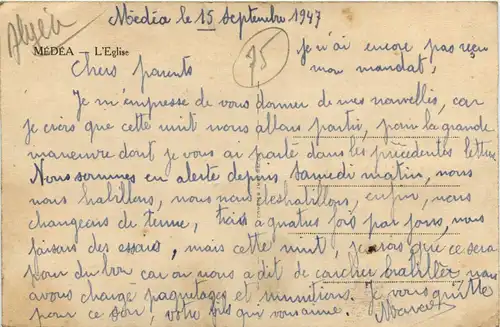 Algérie
Médéa le 15 septembre 1947
MÉDÉA — L'Eglise
75
je n'ai encore pas reçu
mon mandat,
Chers parents
Je m'empresse de vous donner de mes nouvelles, car
je crois que cette nuit nous allons partir, pour la grande
maneuvre dont je vous ai parlé dans les précédentes lettres
Nous sommes en alerte depuis samedi matin, nous
nous habillons, nous nous deshabillons, enfin, nous
changeons de tenue, trois à quatres fois par jours, nous
faisons des essais, mais cette nuit, je crois que ce sera
pour du bon car on nous a dit de coucher habiller nous
avons chargé paquetages et munitions. Je vous quitte
pour ce soir, votre fils qui vous aime.